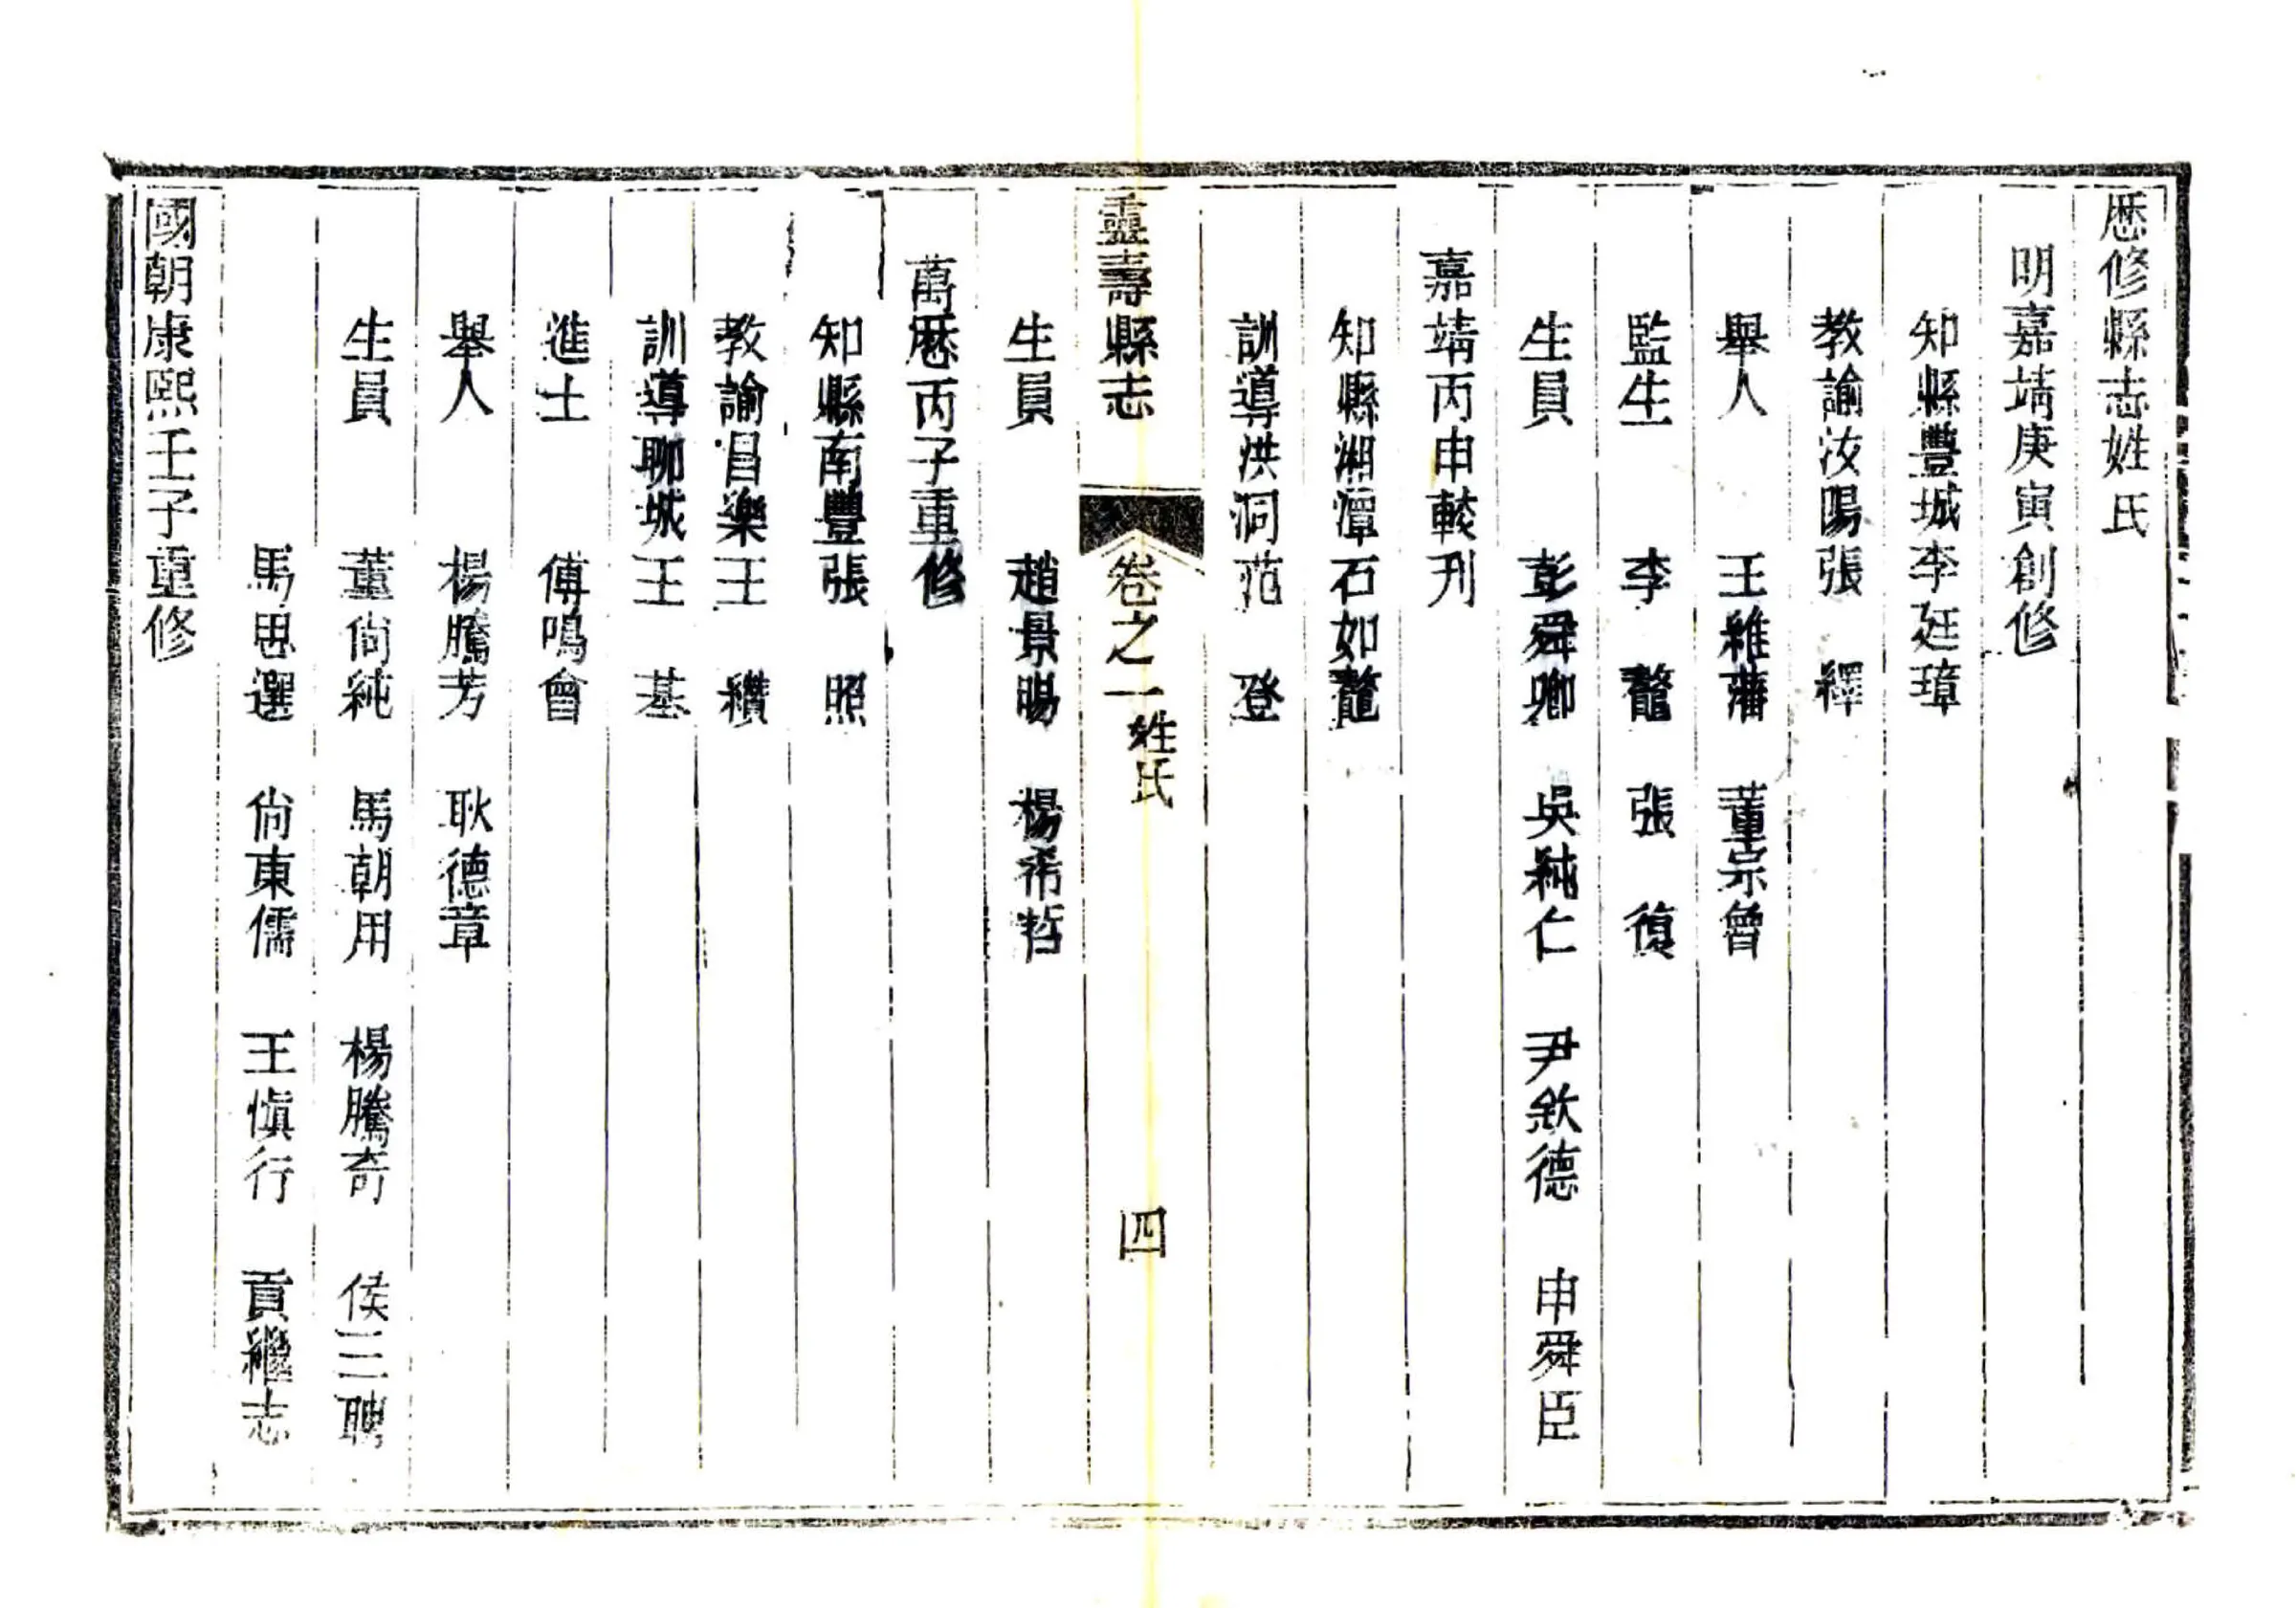 厯修縣志姓氏
明嘉靖庚寅創修
知縣豐城李廷璋
教諭汝陽張 繹
舉人 王維藩 董宗曾
監生 李鼇 張復
生員 彭舜卿 吳純仁 尹欽德 申舜臣
嘉靖丙申輳刋
知縣湘潭石如鼇
訓導洪洞范 登
靈壽縣志 卷之一 姓氏 四
生員 趙景暘 楊希哲
萬厯丙子重修
知縣南豐張 照
教諭昌樂王 纘
訓導聊城王 基
進士 傅鳴會
舉人 楊騰芳 耿德章
生員 董尙純 馬朝用 楊騰奇 侯三聘
馬思選 尙東儒 王愼行 貢繼志
國朝康熙壬子重修